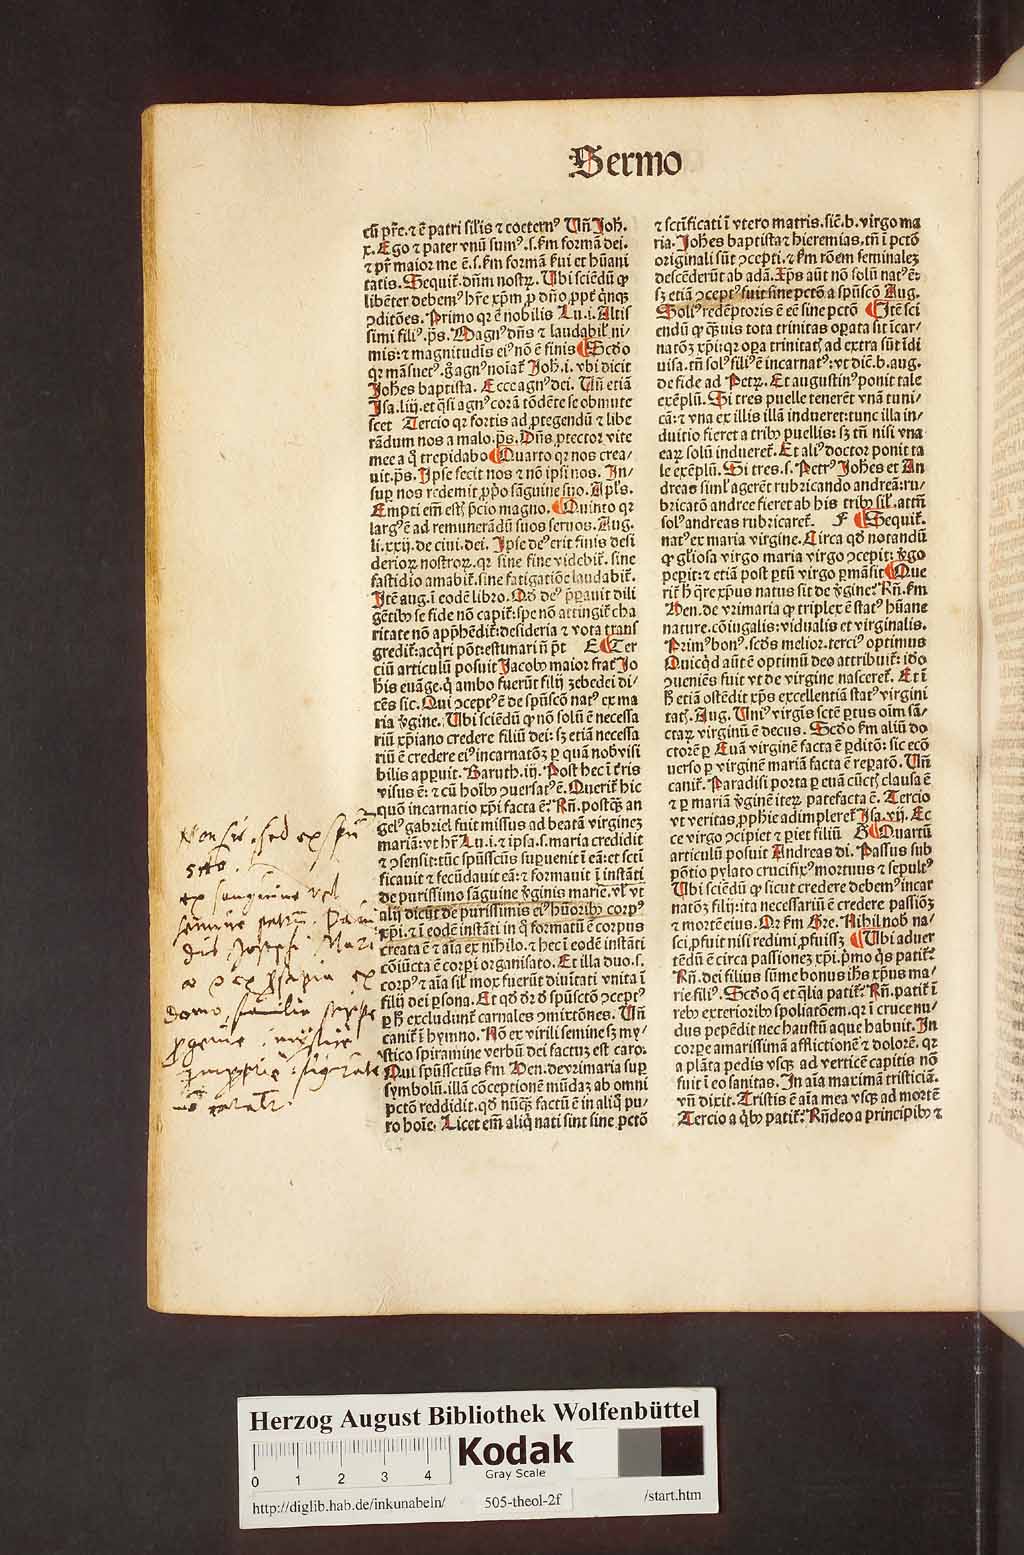 Sermo
cū pr̄e. ⁊ ē patri sil'is ⁊ coetern⁹ Uñ Joh̄.
x. Ego ⁊ pater vnū sum⁹. s. ẜm formā dei.
⁊ pr̄ maior me ē. s. ẜm formā ẜui et hūani
tatis. Sequit̄. dn̄m nostꝝ. Ubi sciēdū ꝙ
libēter debem⁹ hr̄e xp̄m ꝓ dn̄o ꝓpt̄ q̇nqꝫ
ↄditōes. Primo qr ē nobilis Lu. i. Altis
simi fili⁹. p̄s. Magn⁹ dn̄s ⁊ laudabil̄ ni-
mis: ⁊ magnitudīs ei⁹ nō ē finis Scd̄o
qr māsuet⁹. g̊ agn⁹ noīat̄ Joh̄. i. vbi dicit
Joh̄es baptista. Ecce agn⁹ dei. Uñ etiā
Isa. liij. et q̄si agn⁹ corā tōdēte se obmute
scet Tercio qr fortis ad ꝓtegendū ⁊ libe
rādum nos a malo. p̄s. Dn̄s ꝓtector vite
mee a q̊ trepidabo Quarto qr nos crea-
uit. p̄s. Ipse fecit nos ⁊ nō ipsi nos. In-
suꝑ nos redemit ꝓp̄o sāguine suo. Apl's.
Empti em̄ estꝭ p̄cio magno. Quinto qr
larg⁹ ē ad remunerādū suos seruos. Aug.
li. xxij. de ciui. dei. Ipse de⁹ erit finis desi
derioꝝ nostroꝝ. qr sine fine videbit̄. sine
fastidio amabit̄. sine fatigatiōe laudabit̄.
Itē aug. ī eodē libro. Qd̄ de⁹ p̄parauit dili
gētibꝫ se fide nō capit̄: spe nō attingit̄ cha
ritate nō app̄hēdit̄: desideria ⁊ vota trans
gredit̄: acq̇ri pōt: estimari ñ pt̄ E Ter
ciū articulū posuit Jacobꝫ maior frat̄ Jo
h̄is euāge. q̇ ambo fuerūt filij zebedei di-
cēs sic. Qui ↄcept⁹ ē de spūscō nat⁹ ex ma
ria ꝟgine. Ubi sciēdū ꝙ nō solū ē necessa
riū xp̄iano credere filiū dei: sꝫ etiā necessa
riū ē credere ei⁹ incarnatōꝫ ꝑ quā nob̄ visi
bilis apꝑuit. Baruth. iij. Post hec ī t̄ris
visus ē: ⁊ cū hoībꝫ ↄuersat⁹ ē. Querit̄ hic
quō incarnatio xp̄i facta ē? Rñ. postq̄ꝫ an
gel⁹ gabriel fuit missus ad beatā virgineꝫ
mariā: vt hr̄ Lu. i. ⁊ ipsa. s. maria credidit
⁊ ↄsensit: tūc spūssctūs suꝑuenit ī eā: et scti
ficauit ⁊ fecūdauit eā: ⁊ formauit ī instāti
de purissimo sāguine ꝟginis marie. vl' vt
alij dicūt de purissimis ei⁹ hūoribꝫ corp⁹
xp̄i. ⁊ ī eodē instāti in q̊ formatū ē corpus
creata ē ⁊ aīa ex nihilo. ⁊ hec ī eodē instāti
cōiūcta ē corꝑi organisato. Et illa duo. s.
corp⁹ ⁊ aīa sil' mox fuerūt diuītati vnita ī
filij dei ꝑsona. Et qd̄ dr̄ d̄ spūsctō ↄcept⁹
ꝑ h̄ excludunt̄ carnales ↄmixtōnes. Uñ
canit̄ ī hymno. Nō ex virili semine sꝫ my-
stico spiramine verbū dei factuꝫ est caro:
Qui spūssctūs ẜm Hen. de vrimaria suꝑ
symbolū. illā cōceptionē mūdaꝫ ab omni
pctō reddidit. qd̄ nūq̄ꝫ factū ē in aliq̊ pu-
ro hoīe. Licet em̄ aliq̇ nati sint sine pctō
⁊ sctificati ī vtero matris. sic̄. b. virgo ma
ria. Joh̄es baptista ⁊ hieremias. tñ ī pctō
originali sūt ↄcepti. ⁊ ẜm rōem seminaleꝫ
descēderūt ab adā. Xp̄s aūt nō solū nat⁹ ē:
sꝫ etiā ↄcept⁹ fuit sine pctō a spūscō Aug.
Soli⁹ redēptoris ē eē sine pctō Itē sci
endū ꝙ q̄uis tota trinitas oꝑata sit īcar-
natōꝫ xp̄i: qr oꝑa trinitatꝭ ad extra sūt īdi
uisa. tñ sol⁹ fili⁹ ē incarnat⁹: vt dic̄. b. aug.
de fide ad Petꝝ. Et augustin⁹ ponit tale
exēplū. Si tres puelle tenerēt vnā tuni-
cā: ⁊ vna ex illis illā indueret: tunc illa in-
duitio fieret a tribꝫ puellis: sꝫ tñ nisi vna
eaꝝ solū indueret̄. Et ali⁹ doctor ponit ta
le exēplū. Si tres. s. Petr⁹ Joh̄es et An
dreas siml' agerēt rubricando andreā: ru-
bricatō andree fieret ab his tribꝫ sil'. attñ
sol⁹ andreas rubricaret̄. F Sequit̄.
nat⁹ ex maria virgine. Circa qd̄ notandū
ꝙ gl'iosa virgo maria virgo ↄcepit: ꝟgo
peꝑit: ⁊ etiā post ꝑtū virgo ꝑmāsit Que
rit̄ h̄ q̄re xp̄us natus sit de ꝟgine? Rñ. ẜm
Hen. de vrimaria ꝙ triplex ē stat⁹ hūane
nature. cōiugalis: vidualis et virginalis.
Prim⁹ bon⁹. scd̄s melior. terci⁹ optimus
Quicq̇d aūt ē optimū deo attribuit̄: ido
ↄueniēs fuit vt de virgine nasceret̄. Et ī
h̄ etiā ostēdit xp̄s excellentiā stat⁹ virgini
tatꝭ. Aug. Uni⁹ virgīs sctē ꝑtus oīm sā-
ctaꝝ virginū ē decus. Scd̄o ẜm aliū do
ctorē ꝑ Euā virginē facta ē ꝑditō: sic ecō
uerso ꝑ virginē mariā facta ē reꝑatō. Uñ
canit̄. Paradisi porta ꝑ euā cūctꝭ clausa ē
⁊ ꝑ mariā ꝟginē iteꝝ patefacta ē. Tercio
vt veritas ꝓphie adimpleret̄ Isa. vij. Ec
ce virgo ↄcipiet ⁊ ꝑiet filiū G Quartū
articulū posuit Andreas di. Passus sub
pōtio pylato crucifix⁹ mortuus ⁊ sepult⁹
Ubi sciēdū ꝙ sicut credere debem⁹ incar
natōꝫ filij: ita necessariū ē credere passiōꝫ
⁊ mortē eius. Qr ẜm Gre. Nihil nob̄ na-
sci ꝓfuit nisi redimi ꝓfuissꝫ Ubi aduer
tēdū ē circa passioneꝫ xp̄i. p̄mo q̇s patit̄?
Rñ. dei filius sūme bonus ih̄s xp̄us ma-
rie fili⁹. Scd̄o q̄ et q̄lia patit̄? Rñ. patit̄ ī
rebꝫ exterioribꝫ spoliatōem. qr ī cruce nu-
dus pepēdit nec haustū aque habuit. In
corꝑe amarissimā afflictionē ⁊ dolorē. qr
a plāta pedis vsqꝫ ad verticē capitis nō
fuit ī eo sanitas. In aīa maximā tristiciā.
vñ dixit. Tristis ē aīa mea vsqꝫ ad mortē
Tercio a q̇bꝫ patit̄? Rñdeo a principibꝫ ⁊
Non sic. sed ex spū
scto.
ex sanguine vel
domo, familia
Herzog August Bibliothek Wolfenbüttel
Kodak
Gray Scale
0 1 2 3 4
http://diglib.hab.de/inkunabeln/ 505-theol-2f /start.htm